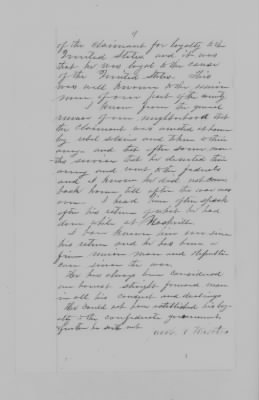 9
of the claimant for loyalty to the
United States and it was
that he was loyal to the cause
of the United States. This
was well known to the union
men of our part of the county
I know from the general
rumor of our neighborhood that
the claimant was arrested at home
by rebel soldiers and taken to their
army and that after some months
service that he deserted their
army and went to the federals
and I know he did not come
back home till after the war was
over. I heard him often speak
after his return what he had
done while at Nashville
I have known him ever since
his return and he has been a
firm union man and Republican
since the war
He has always been considered
an honest straight forward man
in all his conduct and dealings
He could not have established his loyalty
to the confederate government